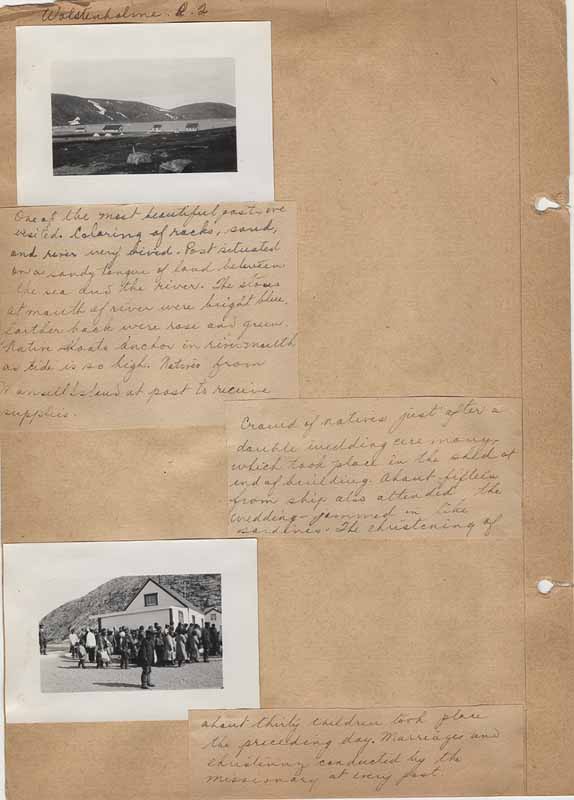 Wolstenholme R-2
One of the most beautiful posts we
visited. Coloring of rocks, sand,
and river very vived. Post situated
on a sandy tongue of land between
the sea and the river. The stones
at mouth of river were bright blue,
farther back were rose and green.
Native boats anchor in rivermouth
as tide is so high. Natives from
Mansell Island at post to receive
supplies.
Crowd of natives just after a
double wedding ceremony,
which took place in the shed at
end of building. About fifteen
from ship also attended the
wedding - jammed in like
sardines. The christening of
about thirty children took place
the preceding day. Marriages and
christening conducted by the
missionary at every post.